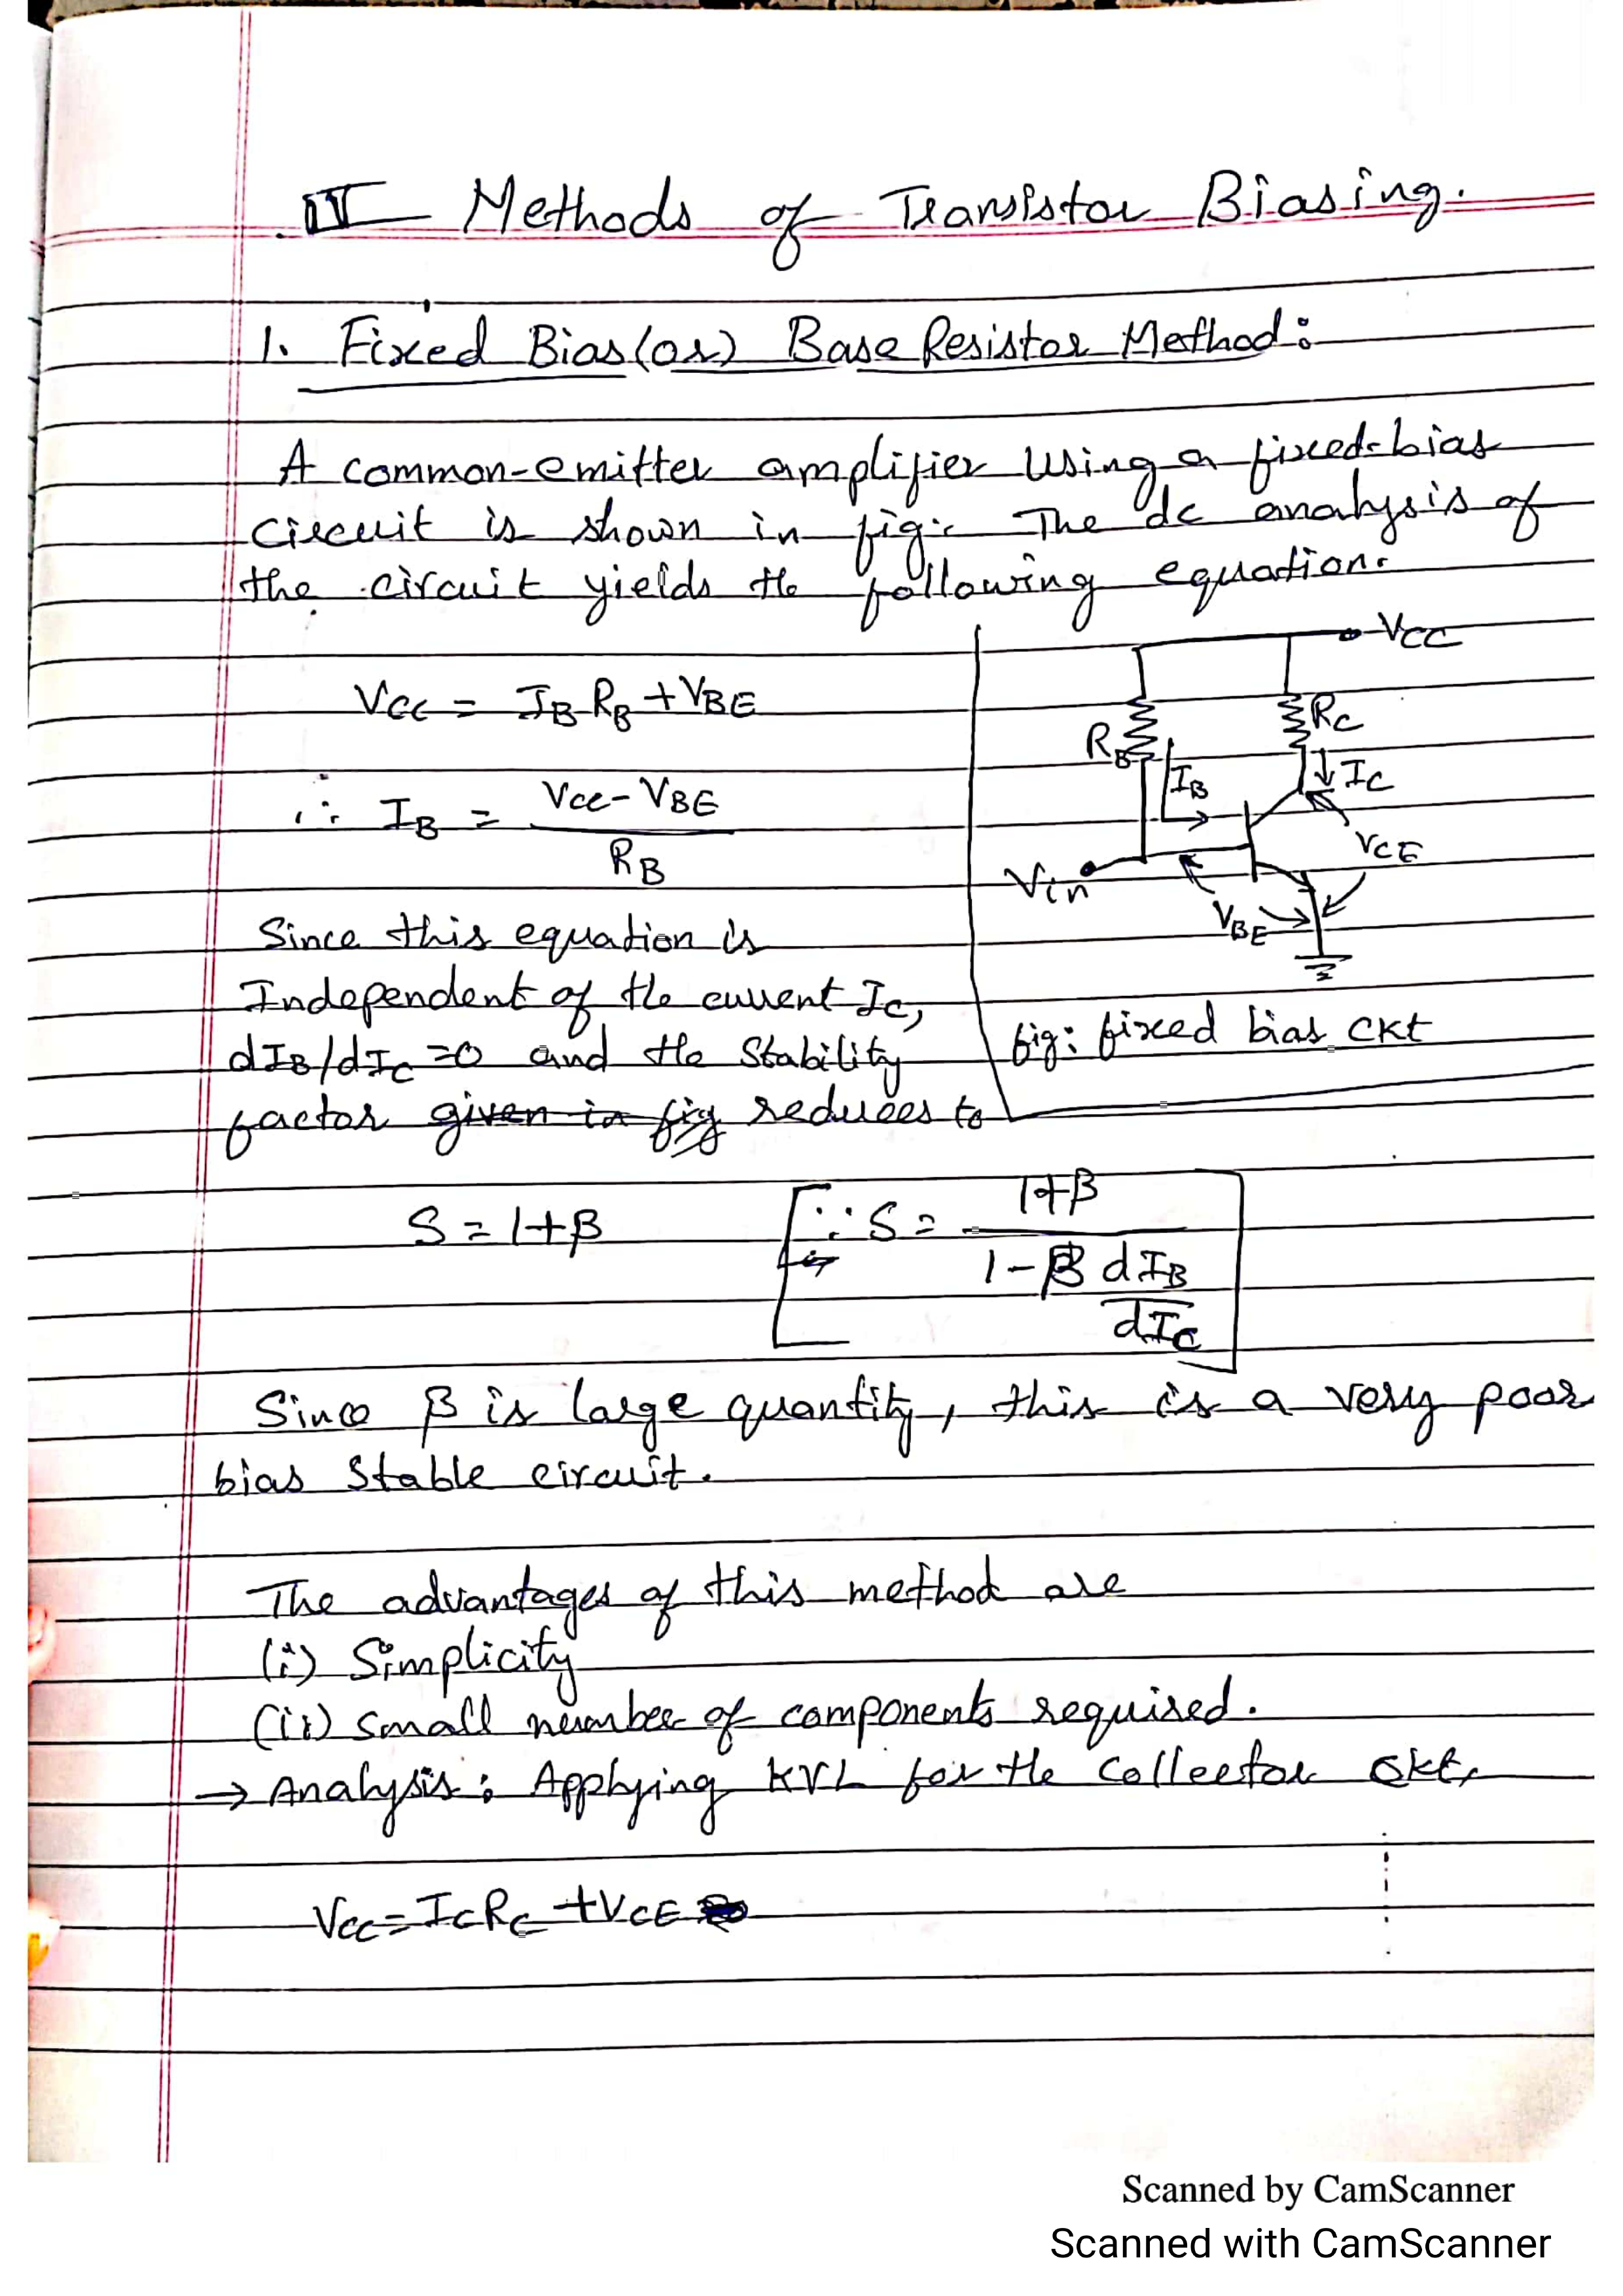 II Methods of Transistor Biasing.
1. Fixed Bias (or) Base Resistor Method:
A common-emitter amplifier using a fixed-bias
circuit is shown in fig. The dc analysis of
the circuit yields the following equation.
VCC = IB RB + VBE
∴ IB = VCC - VBE
RB
VCC
RC
RB
IB
IC
VCE
Vin
VBE
fig: fixed bias ckt
Since this equation is
Independent of the current IC,
dIB/dIC = 0 and the Stability
factor given in fig reduces to
S = 1+β
∵ S = 1+β
1 - β dIB
dIC
Since β is large quantity, this is a very poor
bias Stable circuit.
The advantages of this method are
(i) Simplicity
(ii) Small number of components required.
→ Analysis: Applying KVL for the Collector ckt,
VCC = IC RC + VCE
Scanned by CamScanner
Scanned with CamScanner